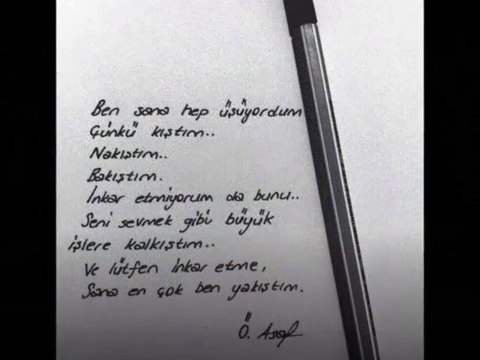 Ben sana hep üşüyordum
Çünkü kıştım..
Nakıştım..
Bakıştım.
İnkar etmiyorum da bunu..
Seni sevmek gibi büyük
işlere kalkıştım..
Ve lütfen inkar etme,
Sana en çok ben yakıştım.
Ö. Asaf